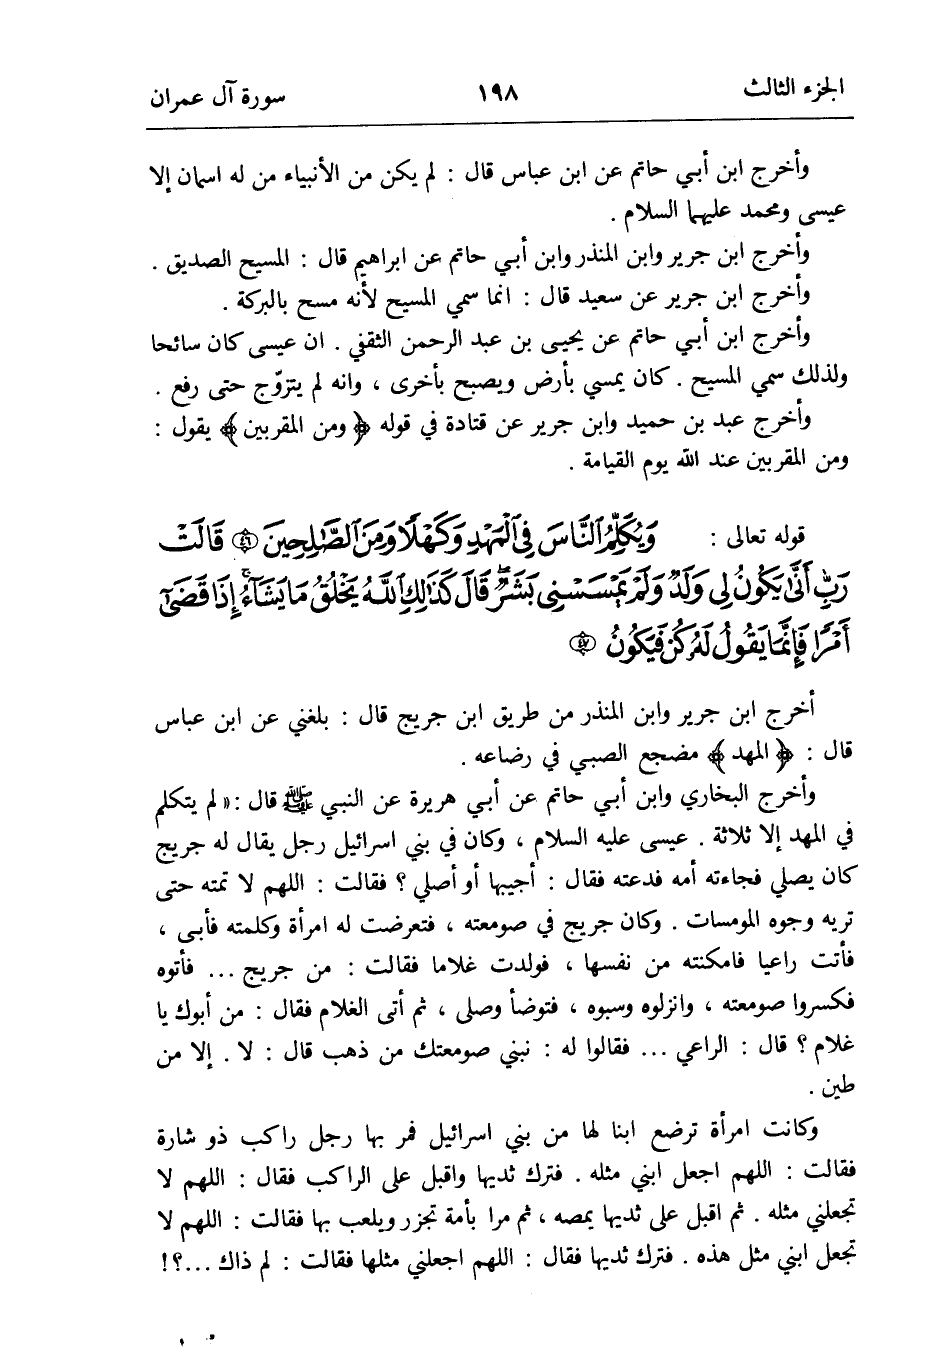 الجزء الثالث ١٩٨ سورة آل عمران
وأخرج ابن أبي حاتم عن ابن عباس قال : لم يكن من الأنبياء من له اسمان إلا
عيسى ومحمد عليهما السلام .
وأخرج ابن جرير وابن المنذر وابن أبي حاتم عن ابراهيم قال : المسيح الصديق .
وأخرج ابن جرير عن سعيد قال : انما سمي المسيح لأنه مسح بالبركة .
وأخرج ابن أبي حاتم عن يحيى بن عبد الرحمن الثقفي . ان عيسى كان سائحا
ولذلك سمي المسيح . كان يمسي بأرض ويصبح بأخرى ، وانه لم يتزوّج حتى رفع .
وأخرج عبد بن حميد وابن جرير عن قتادة في قوله ﴿ ومن المقربين ﴾ يقول :
ومن المقربين عند الله يوم القيامة .
قوله تعالى : وَيُكَلِّمُ ٱلنَّاسَ فِي ٱلْمَهْدِ وَكَهْلًا وَمِنَ ٱلصَّٰلِحِينَ ﴿٤٦﴾ قَالَتْ
رَبِّ أَنَّىٰ يَكُونُ لِي وَلَدٌ وَلَمْ يَمْسَسْنِي بَشَرٌ ۖ قَالَ كَذَٰلِكِ ٱللَّهُ يَخْلُقُ مَا يَشَآءُ ۚ إِذَا قَضَىٰٓ
أَمْرًا فَإِنَّمَا يَقُولُ لَهُۥ كُن فَيَكُونُ ﴿٤٧﴾
أخرج ابن جرير وابن المنذر من طريق ابن جريج قال : بلغني عن ابن عباس
قال : ﴿ المهد ﴾ مضجع الصبي في رضاعه .
وأخرج البخاري وابن أبي حاتم عن أبي هريرة عن النبي ﷺ قال : « لم يتكلم
في المهد إلا ثلاثة . عيسى عليه السلام ، وكان في بني اسرائيل رجل يقال له جريج
كان يصلي فجاءته أمه فدعته فقال : أجيبها أو أصلي ؟ فقالت : اللهم لا تمته حتى
تريه وجوه المومسات . وكان جريج في صومعته ، فتعرضت له امرأة وكلمته فأبى ،
فأتت راعيا فامكنته من نفسها ، فولدت غلاما فقالت : من جريج ... فأتوه
فكسروا صومعته ، وانزلوه وسبوه ، فتوضأ وصلى ، ثم أتى الغلام فقال : من أبوك يا
غلام ؟ قال : الراعي ... فقالوا له : نبني صومعتك من ذهب قال : لا . إلا من
طين .
وكانت امرأة ترضع ابنا لها من بني اسرائيل فمر بها رجل راكب ذو شارة
فقالت : اللهم اجعل ابني مثله . فترك ثديها واقبل على الراكب فقال : اللهم لا
تجعلني مثله . ثم اقبل على ثديها يمصه ، ثم مرا بأمة تجزر ويلعب بها فقالت : اللهم لا
تجعل ابني مثل هذه . فترك ثديها فقال : اللهم اجعلني مثلها فقالت : لم ذاك ...؟!